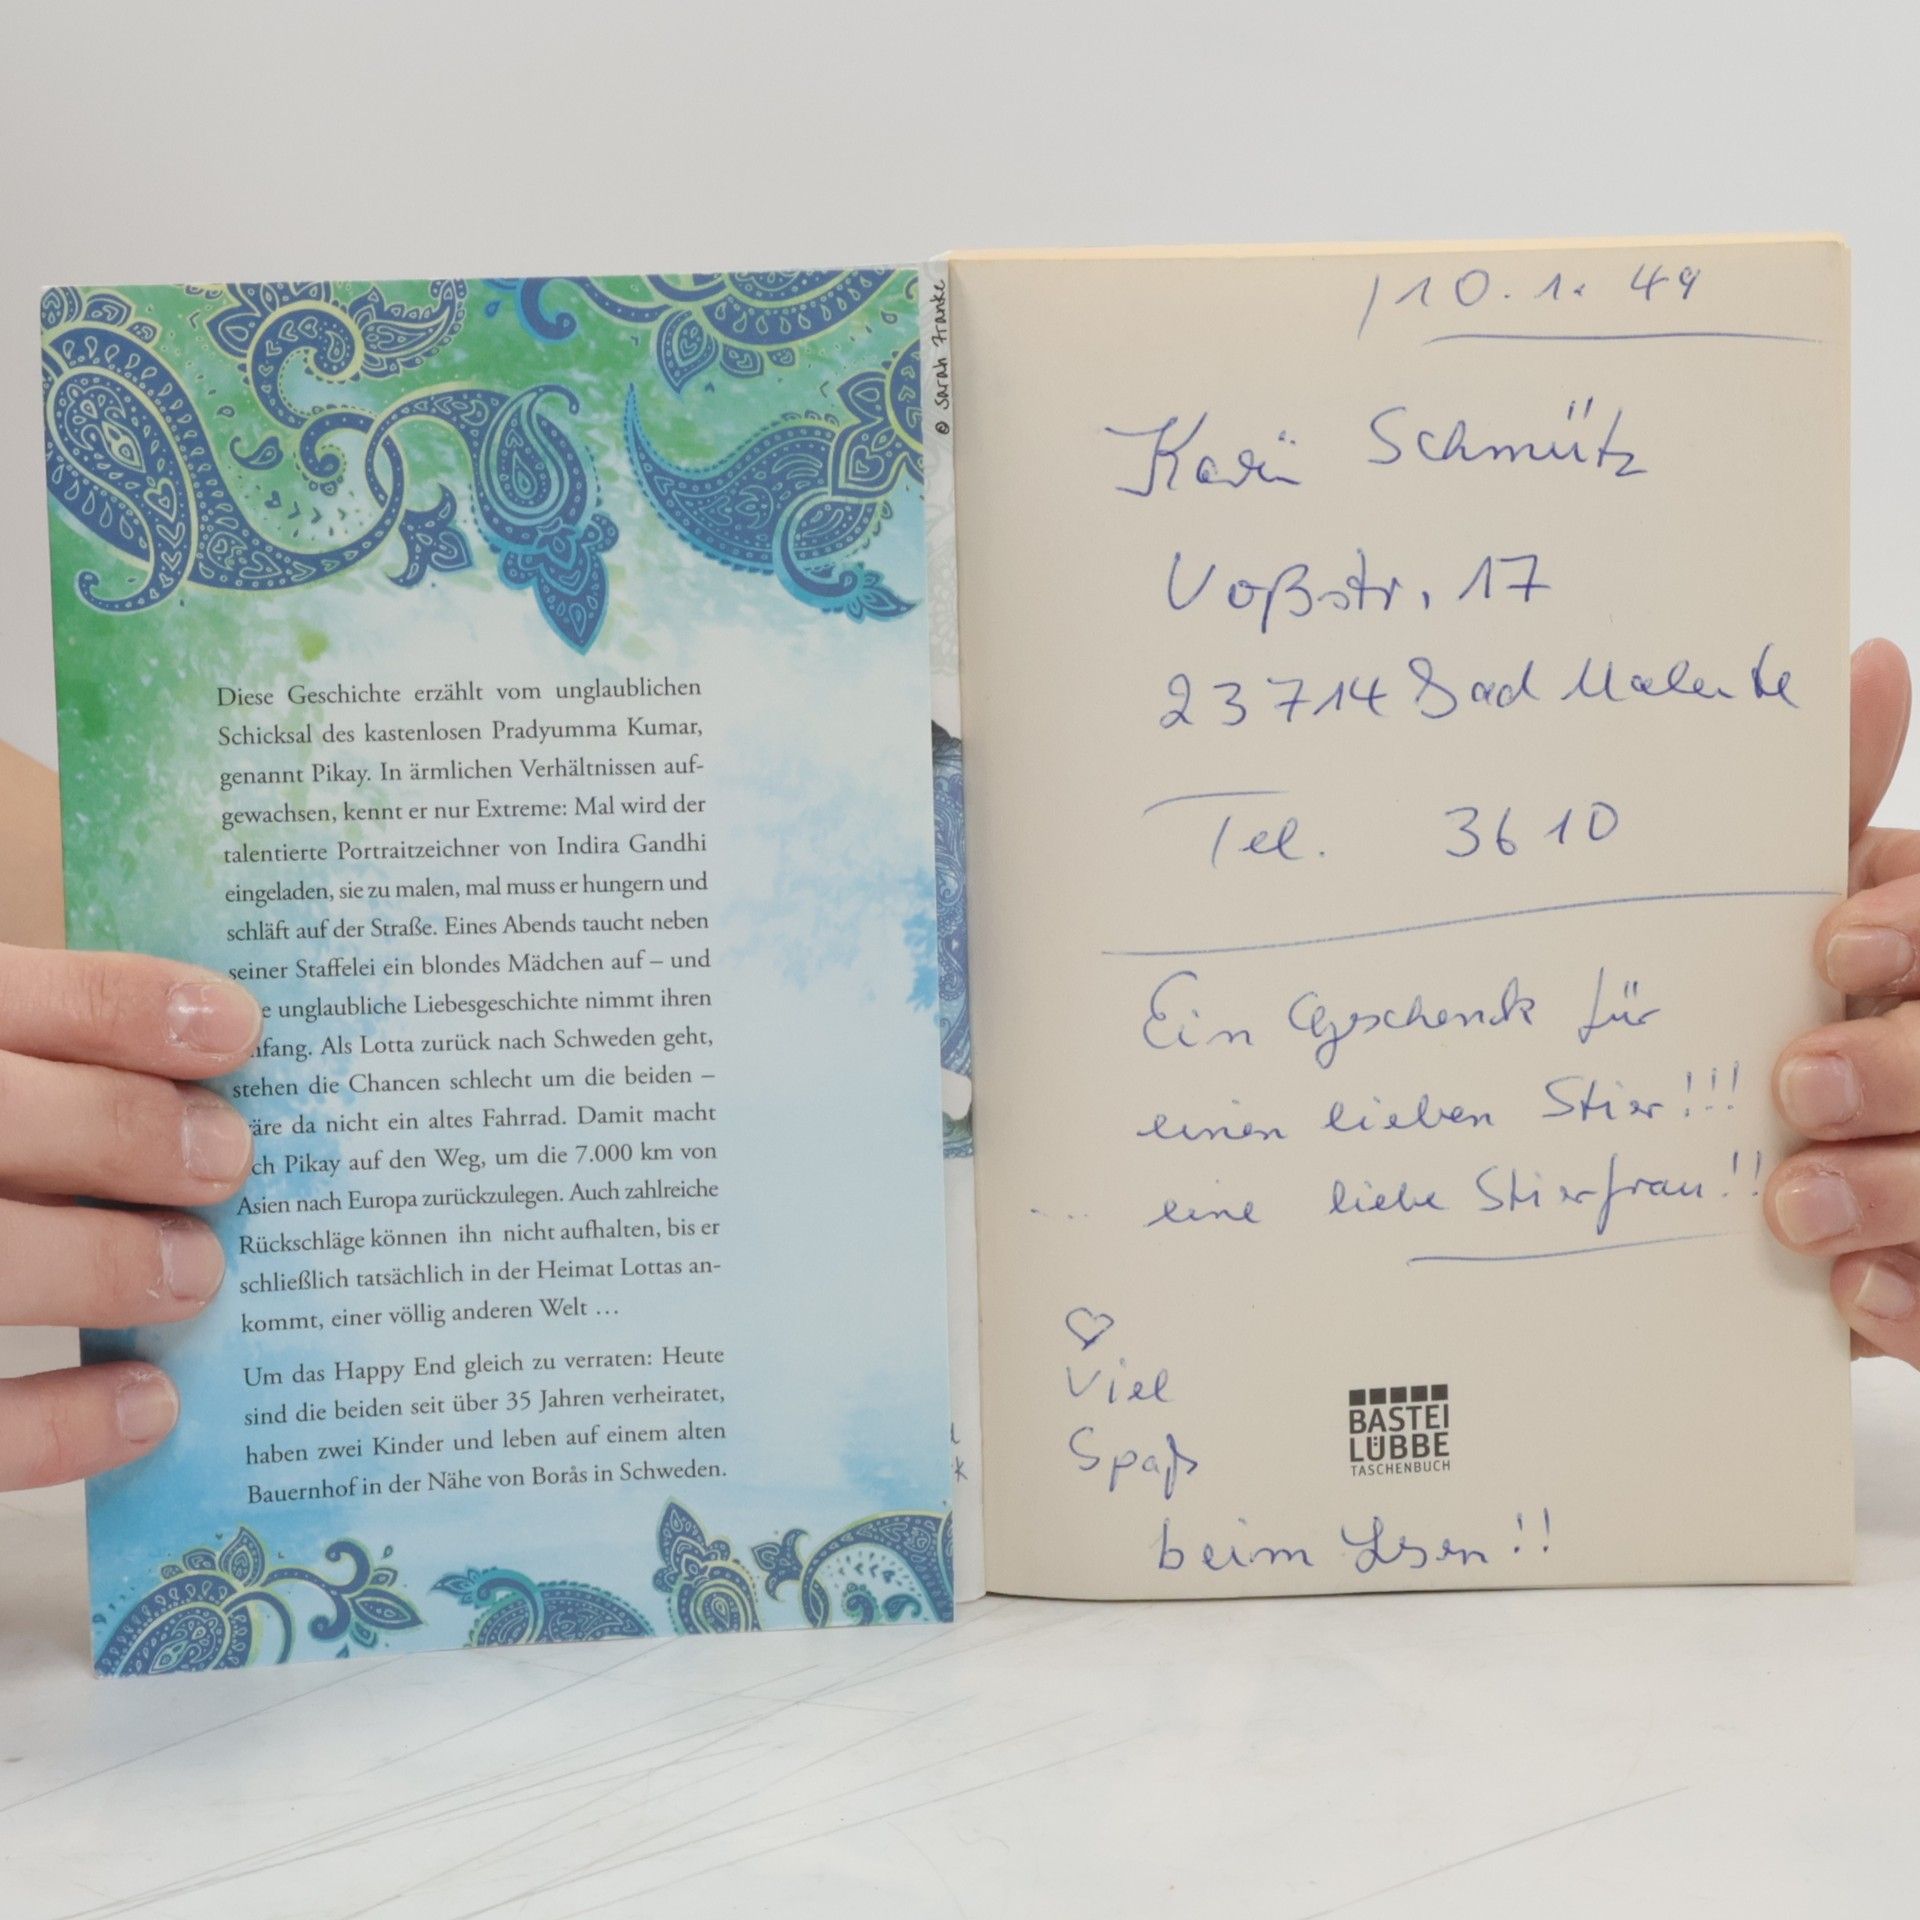 Diese Geschichte erzählt vom unglaublichen
Schicksal des kastenlosen Pradyumma Kumar,
genannt Pikay. In ärmlichen Verhältnissen auf-
gewachsen, kennt er nur Extreme: Mal wird der
talentierte Portraitzeichner von Indira Gandhi
eingeladen, sie zu malen, mal muss er hungern und
schläft auf der Straße. Eines Abends taucht neben
seiner Staffelei ein blondes Mädchen auf – und
unglaubliche Liebesgeschichte nimmt ihren
nfang. Als Lotta zurück nach Schweden geht,
stehen die Chancen schlecht um die beiden –
äre da nicht ein altes Fahrrad. Damit macht
ch Pikay auf den Weg, um die 7.000 km von
Asien nach Europa zurückzulegen. Auch zahlreiche
Rückschläge können ihn nicht aufhalten, bis er
schließlich tatsächlich in der Heimat Lottas an-
kommt, einer völlig anderen Welt …
Um das Happy End gleich zu verraten: Heute
sind die beiden seit über 35 Jahren verheiratet,
haben zwei Kinder und leben auf einem alten
Bauernhof in der Nähe von Borås in Schweden.
© Sarah Franke
/ 10. 1. 49
Schmütz
Voßstr. 17
23714 Bad Malente
Tel. 3610
Ein Geschenk für
einen lieben Stier!!!
... eine liebe Stierfrau!!
♡
Viel
Spaß
beim Lesen!!
BASTEI
LÜBBE
TASCHENBUCH